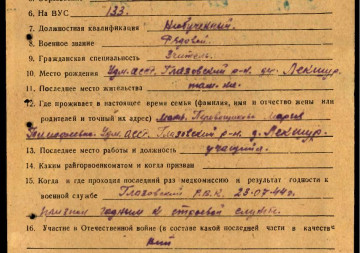 6. На ВУС 133.
7. Должностная квалификация Необученный.
8. Военное звание Рядовой.
9. Гражданская специальность Учитель.
10. Место рождения Удм. асср. Глазовский р-н. д. Лекшур.
11. Последнее место жительства там-же
12. Где проживает в настоящее время семья (фамилия, имя и отчество жены или
родителей и точный их адрес) мать Мария
Тимофеевна. Удм. асср. Глазовский р-н. д. Лекшур.
13. Последнее место работы и должность учащийся.
14. Каким райгорвоенкоматом и когда призван
15. Когда и где проходил последний раз медкомиссию и результат годности к
военной службе Глазовский р.в.к. 23-07-44г.
признан годным к строевой службе.
16. Участие в Отечественной войне (в составе какой последней части в качестве